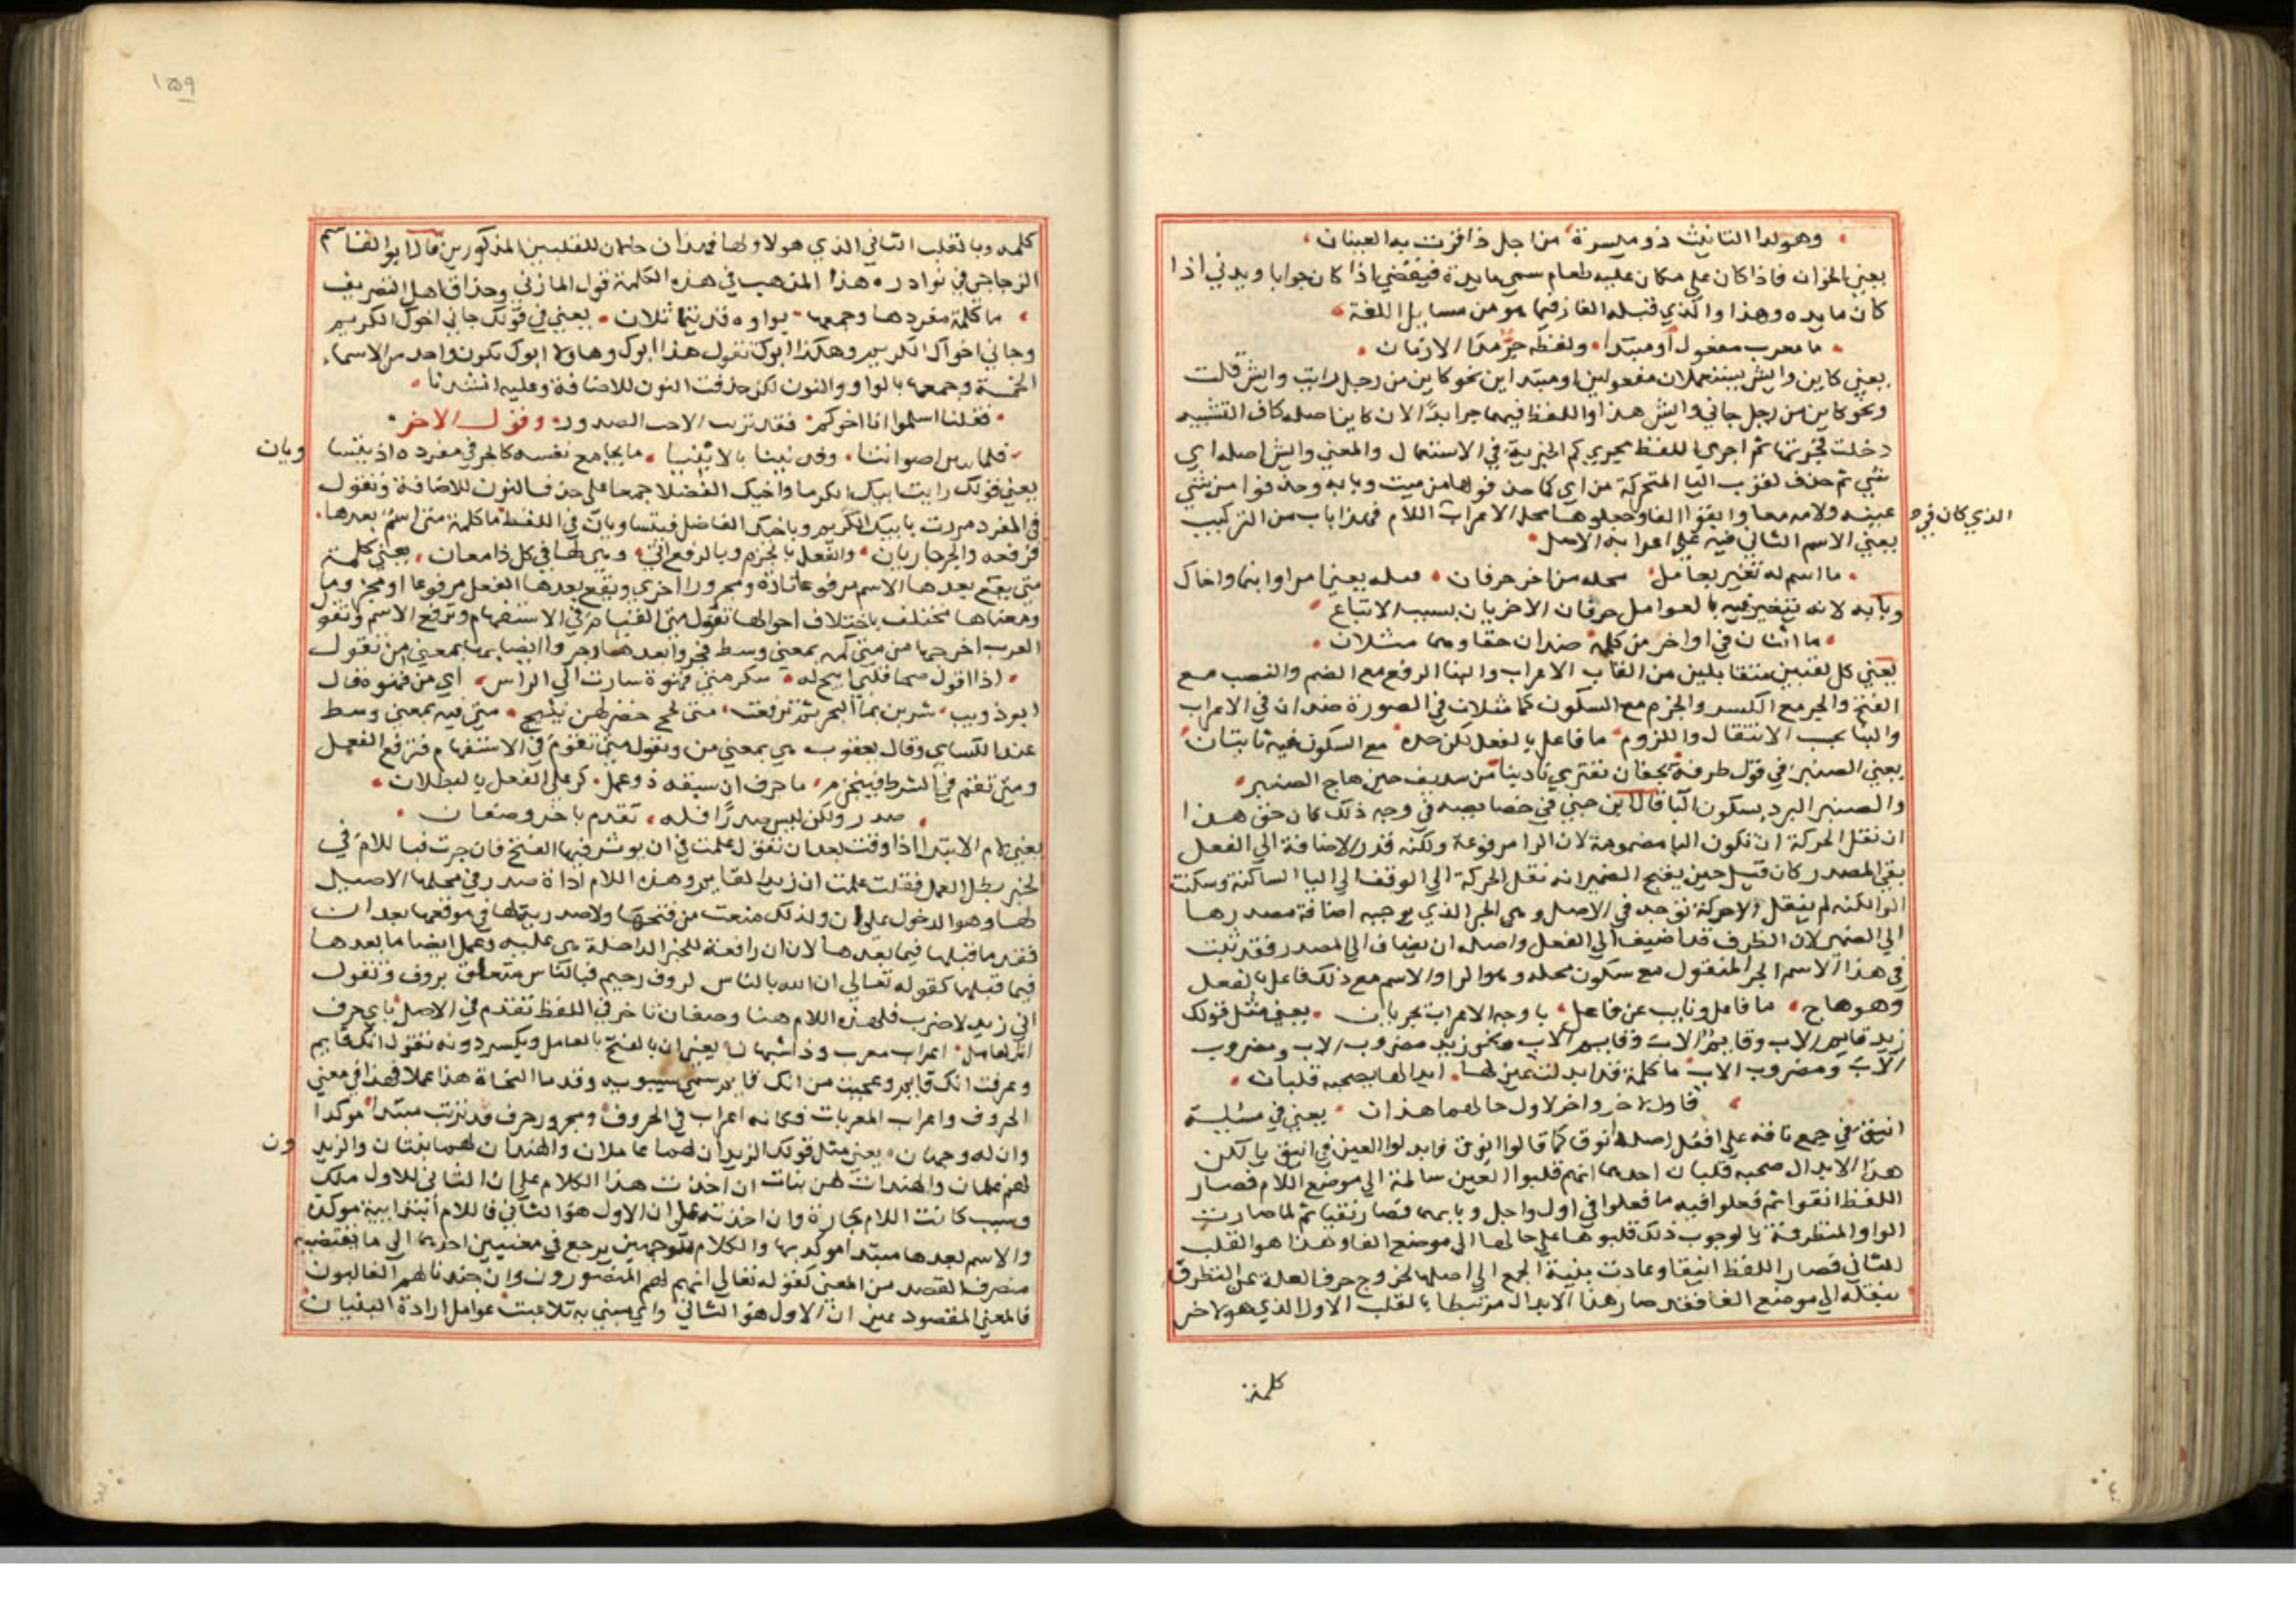 وهو لدا التانيث ذو ميسرة من اجل ذا قرت به العينان
يعني الخوان فاذا كان على مكان عليه طعام سمي مايدة فيقضي اذا كان خوابا ويدني اذا
كان مايده وهذا والذي قبله الغاز فيما هو من مسايل اللغة
ما معرب مفعول او مبتدا ولفظه جر مدا الازمان
يعني كاين وايش يستعملان مفعولين او مبتداين نحو كاين من رجل رايت وايش قلت
ونحو كاين من رجل جاني وايش هذا واللفظ فيهما جر ابدا لان كاين اصله كاف التشبيه
دخلت فجرتها ثم اجري اللفظ مجري كم الخبرية في الاستعمال والمعني وايش اصله اي
شي ثم حذف لقرب اليا المتحركة من اي كما حذفوها من ميت وبابه وحذفوا من شي
عينه ولامه معا وابقوا الفا وجعلوها محل الاعراب اللام فهذا باب من التركيب
الذي كان في
يعني الاسم الثاني فيه علي اعرابه الاصل
ما اسم له تغير بعامل محله من اخر حرفان يعني امرا وابنما واخاك
وبابه لانه يتغير فيه بالعوامل حرفان الاخريان بسبب الاتباع
ما اثنان في اواخر من كلمة ضدان حقا وهما مثلان
يعني كل لقبين متقابلين من القاب الاعراب والبنا الرفع مع الضم والنصب مع
الفتح والجر مع الكسر والجزم مع السكون كما مثلان في الصورة ضدان في الاعراب
والبنا يجب الانتقال واللزوم ما فاعل بالفعل لكن جره مع السكون فيه ثابتان
يعني الصنبر في قول طرفة بجفان تعتري نادينا من سديف حين هاج الصنبر
والصنبر البرد بسكون البا قال ابن جني في خصايصه في وجه ذلك كان حق هذا
ان نقل الحركة ان تكون البا مضمومة لان الرا مرفوعة ولكنه قدر الاضافة الي الفعل
يعني المصدر كان قيل حين يفتح الضمير انه نقل الحركة الي الوقف الي البا الساكنة وسكنت
الرا لكنه لم ينقل الاحركة توجد في الاصل وهي الجر الذي يوجبه اضافة مصدرها
الي الضمير لان الظرف قد اضيف الي الفعل واصله ان يضاف الي المصدر فقد ثبت
في هذا الاسم الجر المنقول مع سكون محله وهو الرا والاسم مع ذلك فاعل بالفعل
وهو هاج ما فاعل وناب عن فاعل باوجه الاعراب يجريان يعني مثل قولك
زيد قايم الاب وقايم الاب وقايم الاب ونحو زيد مضروب الاب ومضروب
الاب ومضروب الاب ما كلمة قد ابدلت عين لها ابدالها يصحبه قلبان
فاول لاخر واخر لاول حالهما هذان يعني في مسئلة
انيق في جمع ناقة علي افعل اصله انوق كما قالوا انوق فابدلوا العين في انيق يا لكن
هذا الابدال صحبه قلبان احدهما انهم قلبوا العين سالمة الي موضع اللام فصار
اللفظ انقوا ثم فعلوا فيه ما فعلوا في اول واجل وبابهما فصار نقيا ثم لما صارت
الواو المتطرفة يا لوجوب ذلك قلبوها علي حالها الي موضع الفا وهذا هو القلب
الثاني فصار اللفظ انيقا وعادت بنية الجمع الي اصلها لخروج حرف العلة عن التطرف
بنقله الي موضع الفا فقد صار هذا الابدال مرتبطا بالقلب الاول الذي هو لاخر
كلمة
١٥٩
كلمه وبالقلب الثاني الذي هو لاولها فهذان حلمان للقلبين المذكورين قال ابو القاسم
الزجاجي في نوادره هذا المذهب في هذه الكلمة قول المازني وحذاق اهل التصريف
ما كلمة مفردها وجمعها بواوه قد بينا ثلاث يعني في قولك جاني اخوك الكريم
وجاني اخوك الكريم وهكذا ابوك تقول هذا ابوك وهاولا ابوك تكون واحد من الاسماء
الخمسة وجمعه بالواو والنون لكن حذفت النون للاضافة وعليه انشدنا
فقلنا اسلموا انا اخوكم فقد بريت الاحن الصدور وقول الاخر
فلما تبين اصواتنا وفديننا بالابينا ما يجامع نفسه كالجر في مفرده اذ يلتسا
ويان
يعني قولك رايت ابيك الكرما واخيك الفضلا جمعا علي حذف النون للاضافة وتقول
في المفرد مررت بابيك الكريم وباخيك الفاضل فيتساويان في اللفظ ما كلمة متى اسم بعدها
فرفعه والجر جاريان والفعل بالجزم وبالرفع اتي وهي لها في كل ذا معان يعني كلمة
متى يقع بعدها الاسم مرفوعا تارة ومجرورا اخري ويقع بعدها الفعل مرفوعا او مجزوما
ومعناها مختلف باختلاف احوالها تقول متى القيام في الاستفهام وترفع الاسم وتقول
العرب اخرجها من متى كمه بمعني وسط فجروا بعدها وجروا ايضا بها بمعني من تقول
اذا اقول صحا قلبي اتيح له سكر متى قهوة سارت الي الراس اي من قهوة وقال
ابو ذويب شربن بما البحر ثم ترفعت متى لجج خضر لهن نئيج متى فيه بمعني وسط
عند الكساي وقال يعقوب هي بمعني من وتقول متى تقوم في الاستفهام فترفع الفعل
ومتى تقم في الشرط فينجزم ما حرف ان سبقه ذو عمل كر علي الفعل بالبطلان
صدر ولكن ليس صدرا قبله تقدم باخر وصفان
يعني لام الابتدا اذا وقعت بعد ان تقول علمت في ان يوثر فيها الفتح فان جرت فبا للام في
الخبر بطل العمل فقلت علمت ان زيدا لقايم وهذه اللام اداة صدر في محلها الاصيل
لها وهو الدخول علي ان ولذلك منعت من فتحها ولا صدريتها في موقعها بعد ان
فقد ما قبلها فيما بعدها لان ان رافعة للخبر الداخلة هي عليه وعمل ايضا ما بعدها
فيما قبلها كقوله تعالي ان الله بالناس لروف رحيم فبالناس متعلق بروف وتقول
اني زيدا لاضرب فلهذه اللام هنا وصفان تاخر في اللفظ تقدم في الاصل باي حرف
اثر لعامل اعراب معرب وذا شبهان يعني ان بالفتح بالعامل ويكسر دونه تقول انك قايم
وعرفت انك قايم وعجبت من انك قايم سمي سيبويه وقدما النحاة هذا عملا فهذا في معني
الحروف واعراب المعربات فكانه اعراب في الحروف ومجرور حرف قد نزيت مبتدا موكدا
وان له وجهان يعني مثل قولك الزيدان لهما غلامان والهندان لهما بنتان والزيد
ون
لهم غلمان والهندات لهن بنات ان اخذت هذا الكلام علي ان الثاني للاول ملك
وسبب كانت اللام جارة وان اخذته علي ان الاول هو الثاني فاللام ابتدايية موكدة
والاسم بعدها مبتدا موكد بها والكلام بتوجهين يرجع في معنيين احدهما الي ما تقتضيه
منصرف القصد من المعني كقوله تعالي انهم لهم المنصورون وان جندنا لهم الغالبون
فالمعني المقصود عين ان الاول هو الثاني واي مبني به تلاعبت عوامل ارادة البنيان